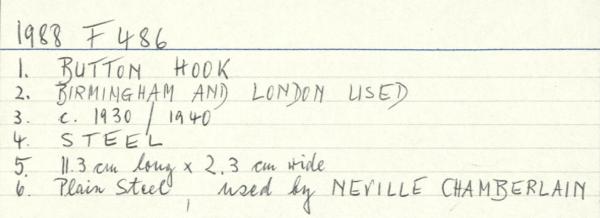 1988 F 486
1. BUTTON HOOK
2. BIRMINGHAM AND LONDON USED
3. c. 1930 / 1940
4. STEEL
5. 11.3 cm long x 2.3 cm wide
6. Plain Steel, used by NEVILLE CHAMBERLAIN